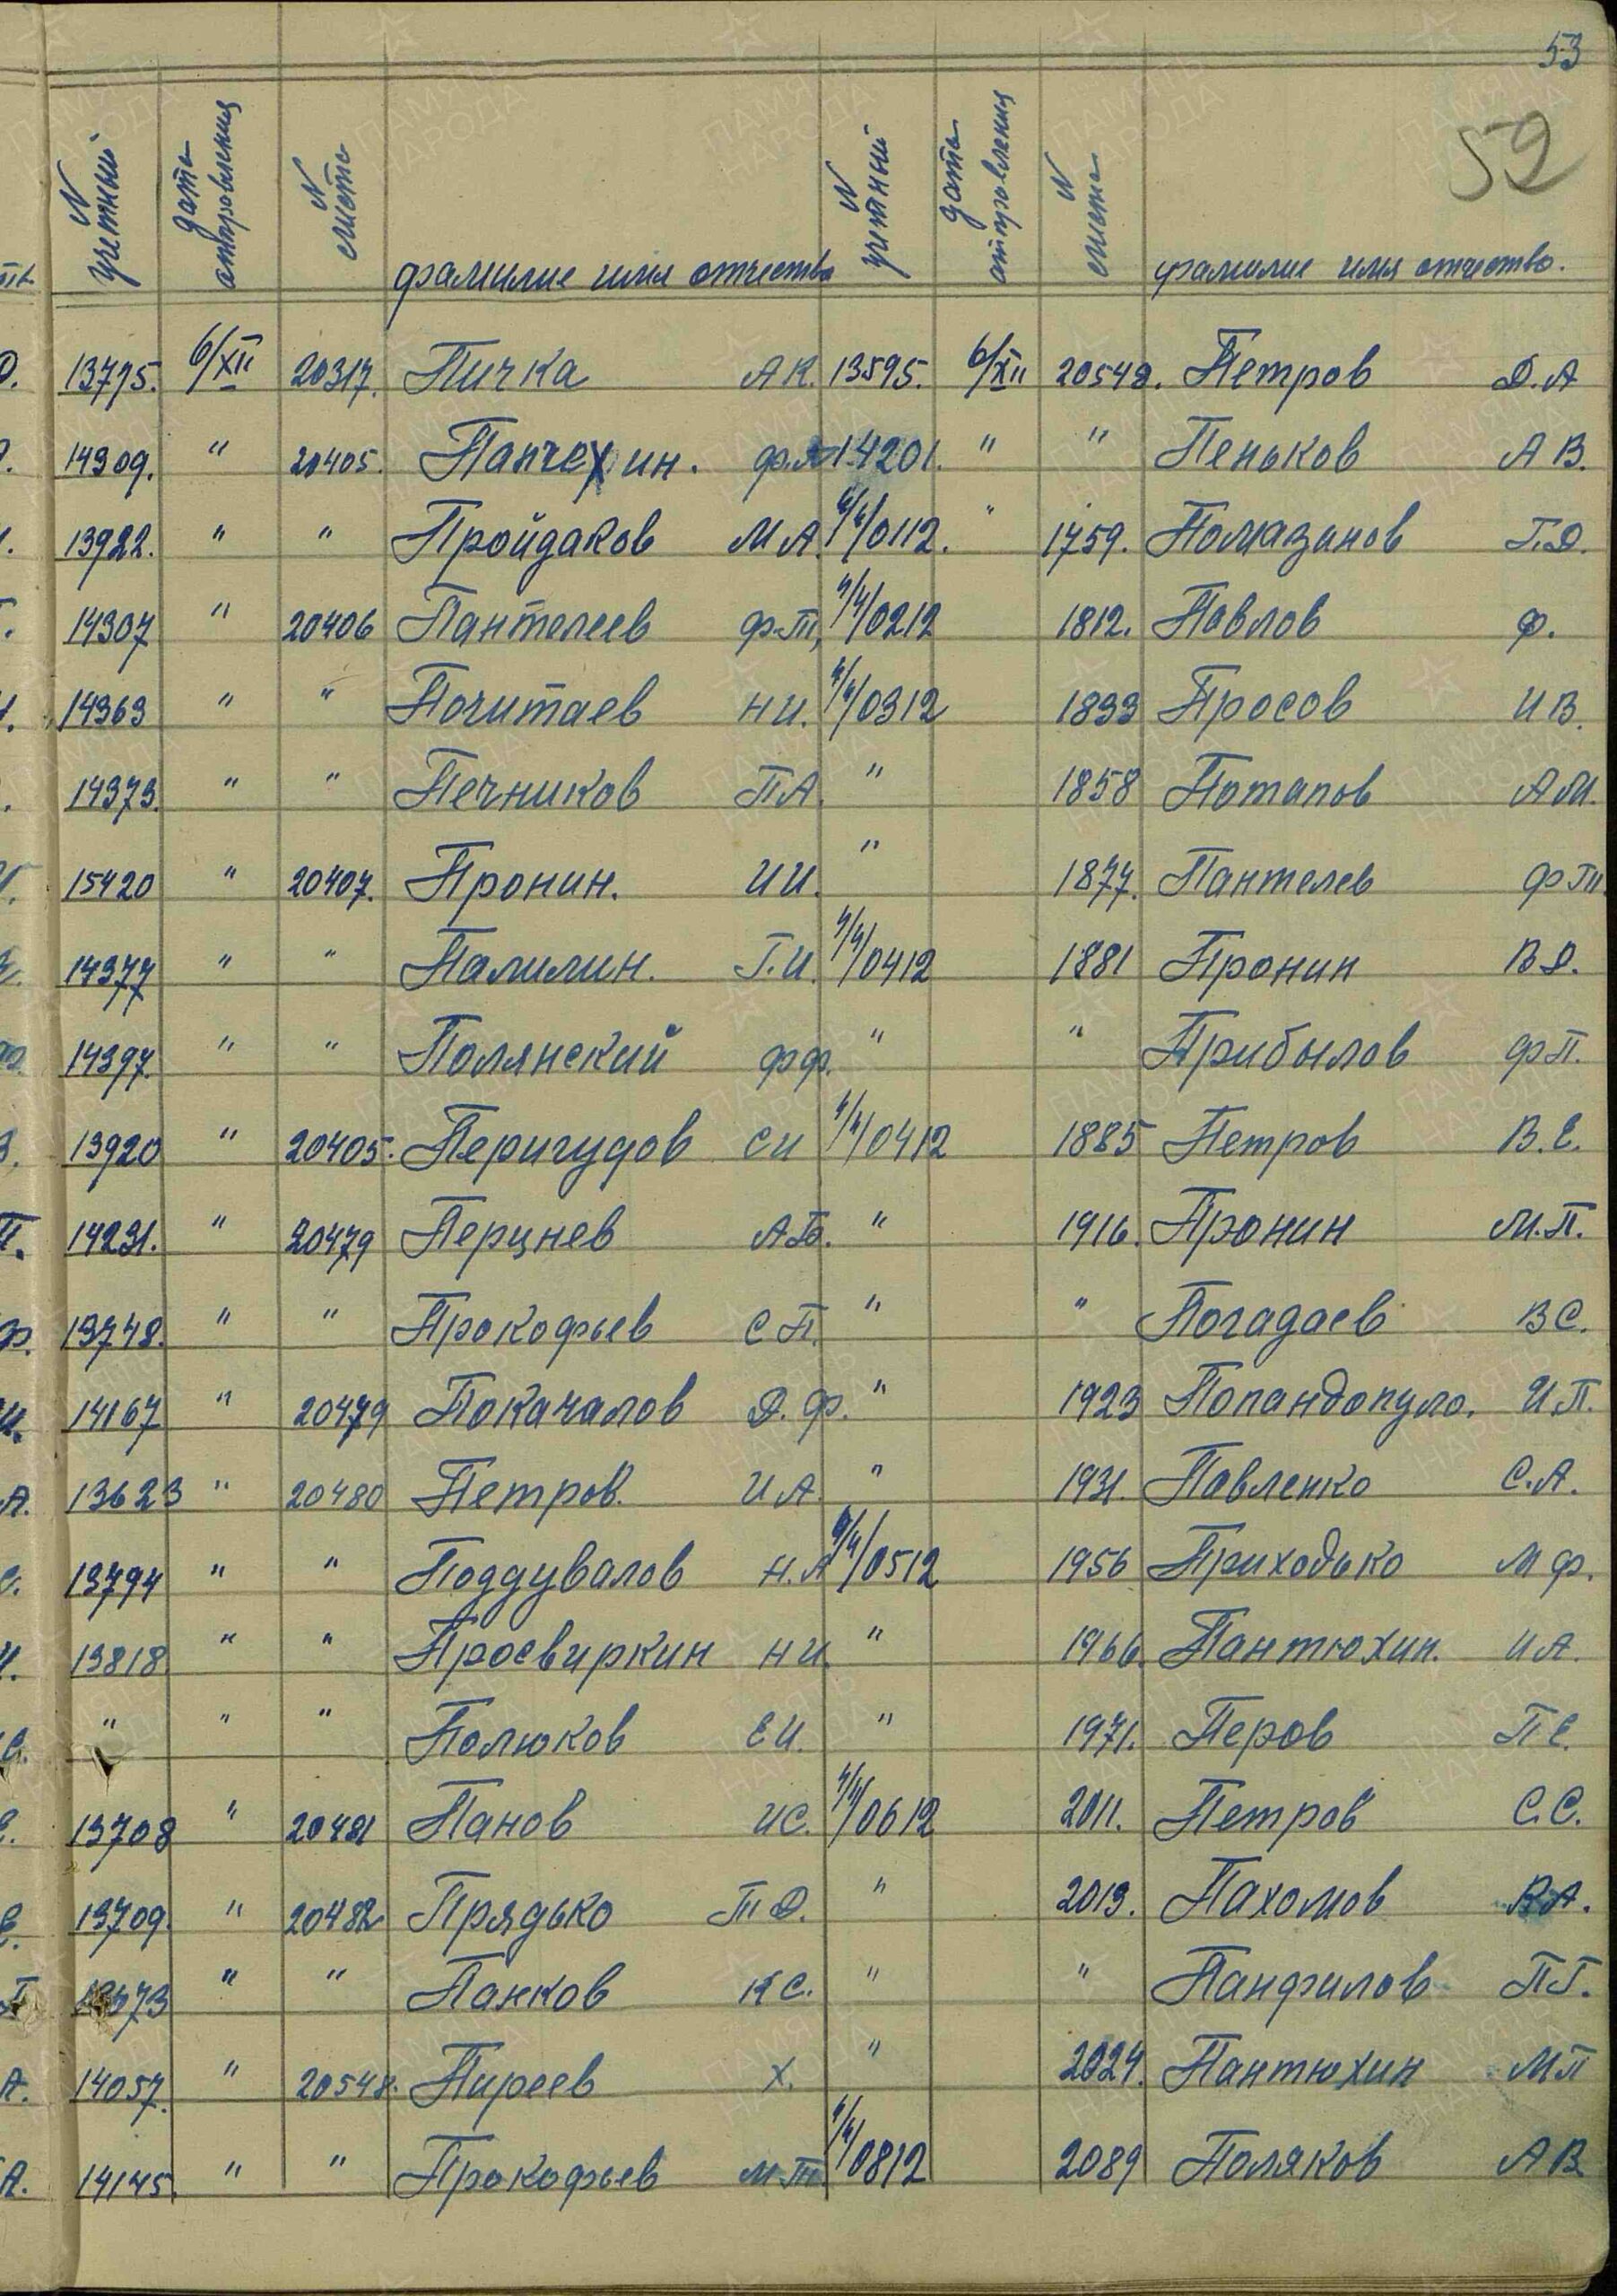 53
52
N учетный дата отправления N листа фамилие имя отчества N учетный дата отправления N листа фамилие имя отчество.
13775. 6/XII 20317. Пичка А К. 13595. 6/XII 20548. Петров Д. А
14309. " 20405. Папчехин. Ф. Я 14201. " " Пеньков А В.
13922. " " Пройдаков М А. 4/4/0112. " 1759. Помазанов Г. Д.
14307 " 20406 Пантелеев Ф. Т. 4/4/0212 1812. Павлов Ф.
14363 " " Почитаев Н И. 4/4/0312 1833 Просов И В.
14373. " " Печников П А. " 1858 Потапов А М.
15420 " 20407. Пронин. И И. " 1877. Пантелев Ф Т.
14377 " " Палилин. Г. И. 4/4/0412 1881 Пронин В Д.
14397. " " Полянский Ф Ф. " " Прибылов Ф П.
13920 " 20405. Перигудов С И 4/4/0412 1885 Петров В. Е.
14231. " 20479 Перцнев А. Б. " 1916. Пронин М. П.
13748. " " Прокофьев С П. " " Погадаев В С.
14167 " 20479 Покачалов Д. Ф. " 1923 Попандопуло. И. П.
13623 " 20480 Петров. И А. " 1931. Павленко С. А.
13794 " " Поддувалов Н. А 4/4/0512 1956 Приходько М Ф.
13818 " " Просвиркин Н И. " 1966. Пантюхин. И А.
" " " Полюков Е И. " 1971. Перов П Е.
13708 " 20481 Панов И С. 4/4/0612 2011. Петров С. С.
13709. " 20482 Прядько Т Д. " 2013. Пахомов В. А.
" " Панков К С. " " Панфилов П Г.
14057. " 20548. Пиреев Х. " 2024. Пантюхин М П
14145. " " Прокофьев М. Т. 4/4/0812 2089 Поляков А В.